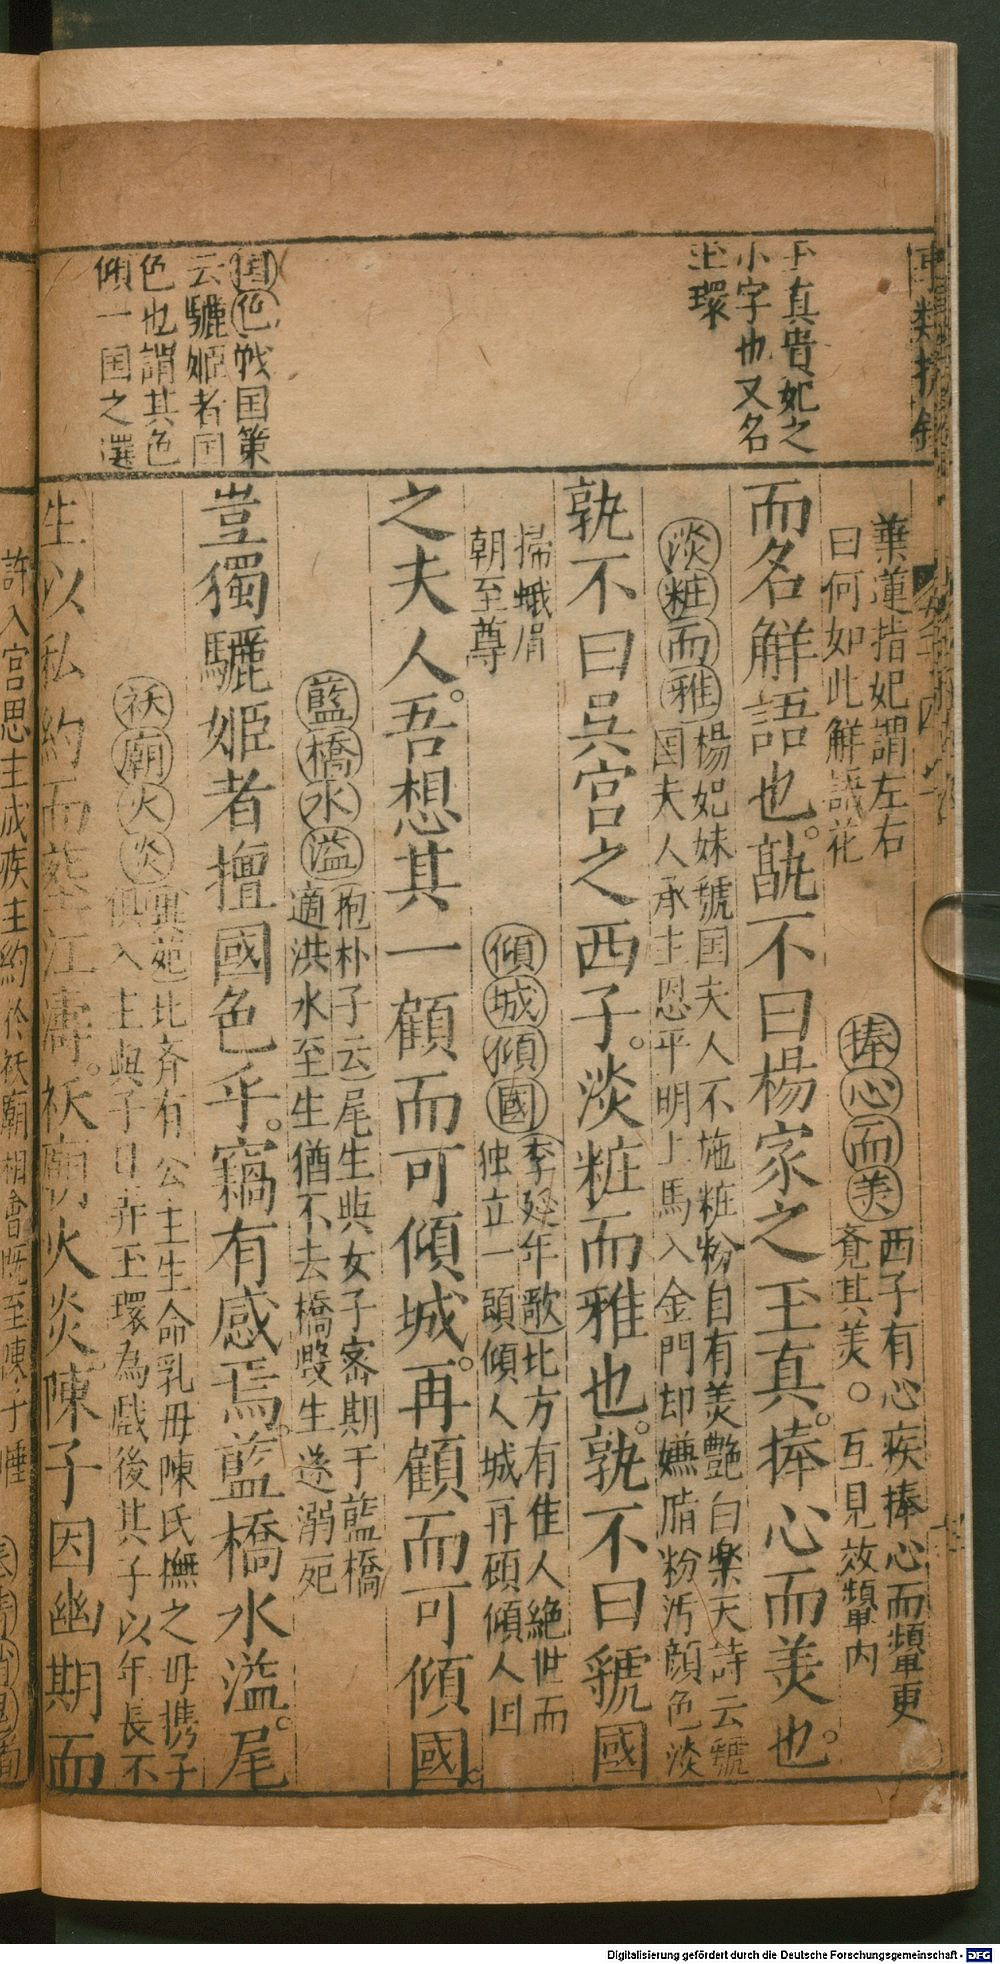 玉真貴妃之
小字也又名
玉環
国色戦国策
云驪姬者国
色也謂其色
傾一国之選
葉蓮指妃謂左右
曰何如此解語花
捧心而美
西子有心疾捧心而顰更
竟其美〇互見效顰内
而名解語也。孰不曰楊家之玉真。捧心而美也。
淡粧而雅
楊妃妹虢国夫人不施粧粉自有美艷白楽天詩云虢
国夫人承主恩平明上馬入金門却嫌脂粉汚顔色淡
孰不曰吳宫之西子。淡粧而雅也。孰不曰虢國
掃蛾眉
朝至尊
傾城傾國
李延年歌北方有佳人絶世而
独立一顧傾人城再顧傾人国
之夫人。吾想其一顧而可傾城。再顧而可傾國。
藍橋水溢
抱朴子云尾生與女子密期于藍橋
適洪水至生猶不去橋毀生遂溺死
豈獨驪姬者擅國色乎。竊有感焉。藍橋水溢。尾
袄廟火炎
異苑北斉有公主生命乳毋陳氏撫之毋携子
俱入主與子日弄玉環為戯後其子以年長不
生以私約而葬江濤。袄廟火炎。陳子因幽期而
許入宫思主成疾主約於袄廟相會既至陳子睡
Digitalisierung gefördert durch die Deutsche Forschungsgemeinschaft - DFG